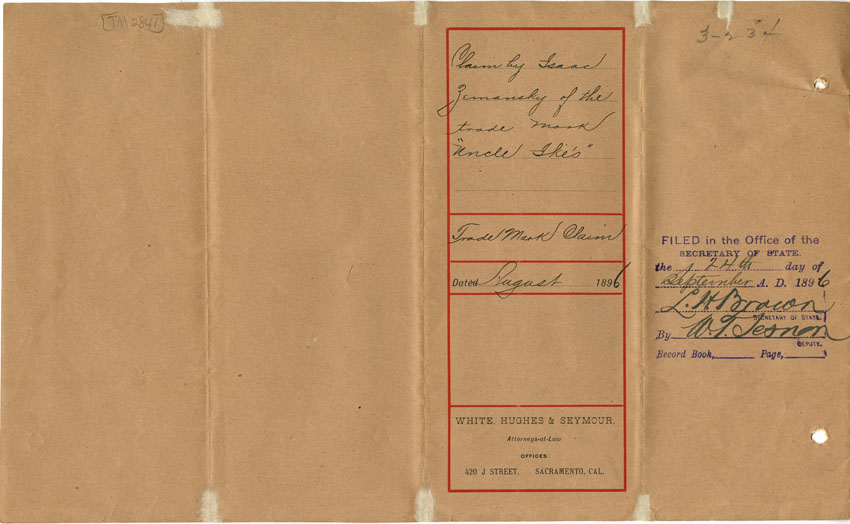 TM 2841
3-234
Claim by Isaac
Zemansky of the
trade mark
"Uncle Ike's"
Trade Mark Claim
Dated August 1896
WHITE, HUGHES & SEYMOUR,
Attorneys-at-Law
OFFICES:
420 J STREET, SACRAMENTO, CAL.
FILED in the Office of the
SECRETARY OF STATE.
the 24th day of
September A. D. 1896
L. H. Brown
SECRETARY OF STATE.
By W. T. Sesnon
DEPUTY.
Record Book, Page,